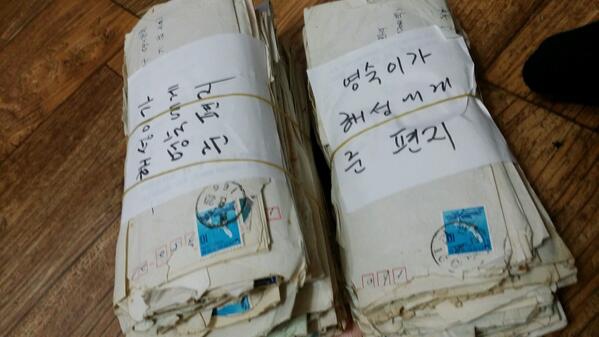 해성이가
영숙에게
준 편지
영숙이가
해성에게
준 편지